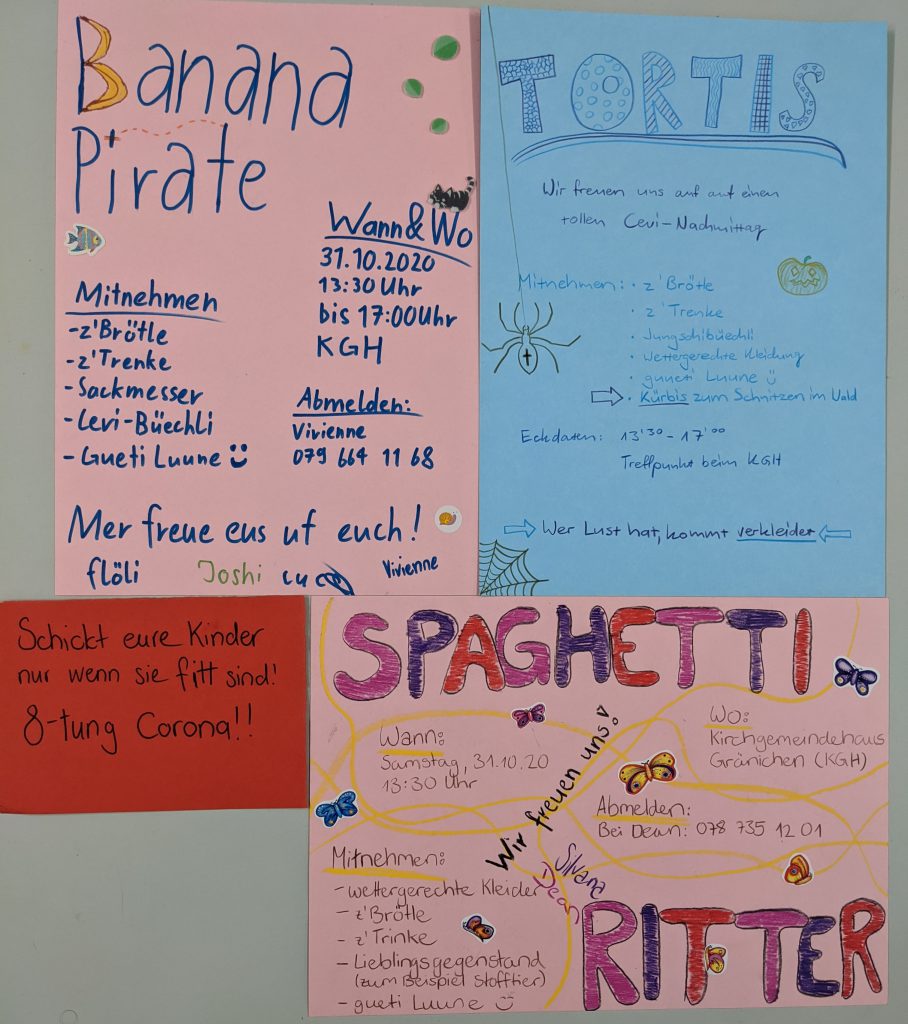 Banana
Pirate
Wann & Wo
31.10.2020
13:30 Uhr
bis 17:00 Uhr
KGH
Mitnehmen
- z'Brötle
- z'Trenke
- Sackmesser
- Cevi-Büechli
- Gueti Luune
Abmelden:
Vivienne
079 664 11 68
Mer freue eus uf euch!
flöli
Joshi
Vivienne
TORTIS
Wir freuen uns auf auf einen
tollen Cevi-Nachmittag
Mitnehmen: • z'Brötle
• z'Trenke
• Jungschibüechli
• wettergerechte Kleidung
• gueti Luune
• Kürbis zum Schnitzen im Wald
Eckdaten: 13'30 - 17'00
Treffpunkt beim KGH
Wer Lust hat, kommt verkleidet
Schickt eure Kinder
nur wenn sie fitt sind!
8-tung Corona!!
SPAGHETTI
Wann:
Samstag, 31.10.20
13:30 Uhr
Wo:
Kirchgemeindehaus
Gränichen (KGH)
Wir freuen uns!
Silvana
Dean
Abmelden:
Bei Dean: 078 735 12 01
Mitnehmen:
- wettergerechte Kleider
- z'Brötle
- z'Trinke
- Lieblingsgegenstand
(zum Beispiel Stofftier)
- gueti Luune
RITTER